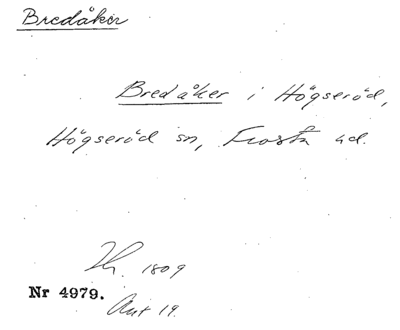 Bredåker
Bredåker i Högseröd,
Högseröd sn, Frosta hd.
1809
Nr 4979.
Akt 19.